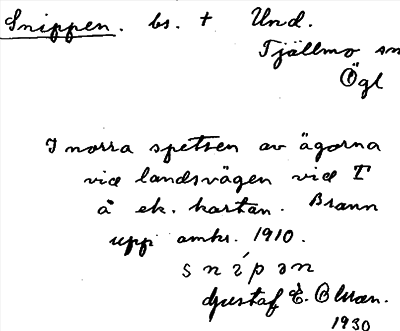 Snippen. bs. + Und.
Tjällmo sn
Ögl
I norra spetsen av ägorna
vid landsvägen vid T
å ek. kartan. Brann
upp omkr. 1910.
snípən
Gustaf E. Olsson.
1930